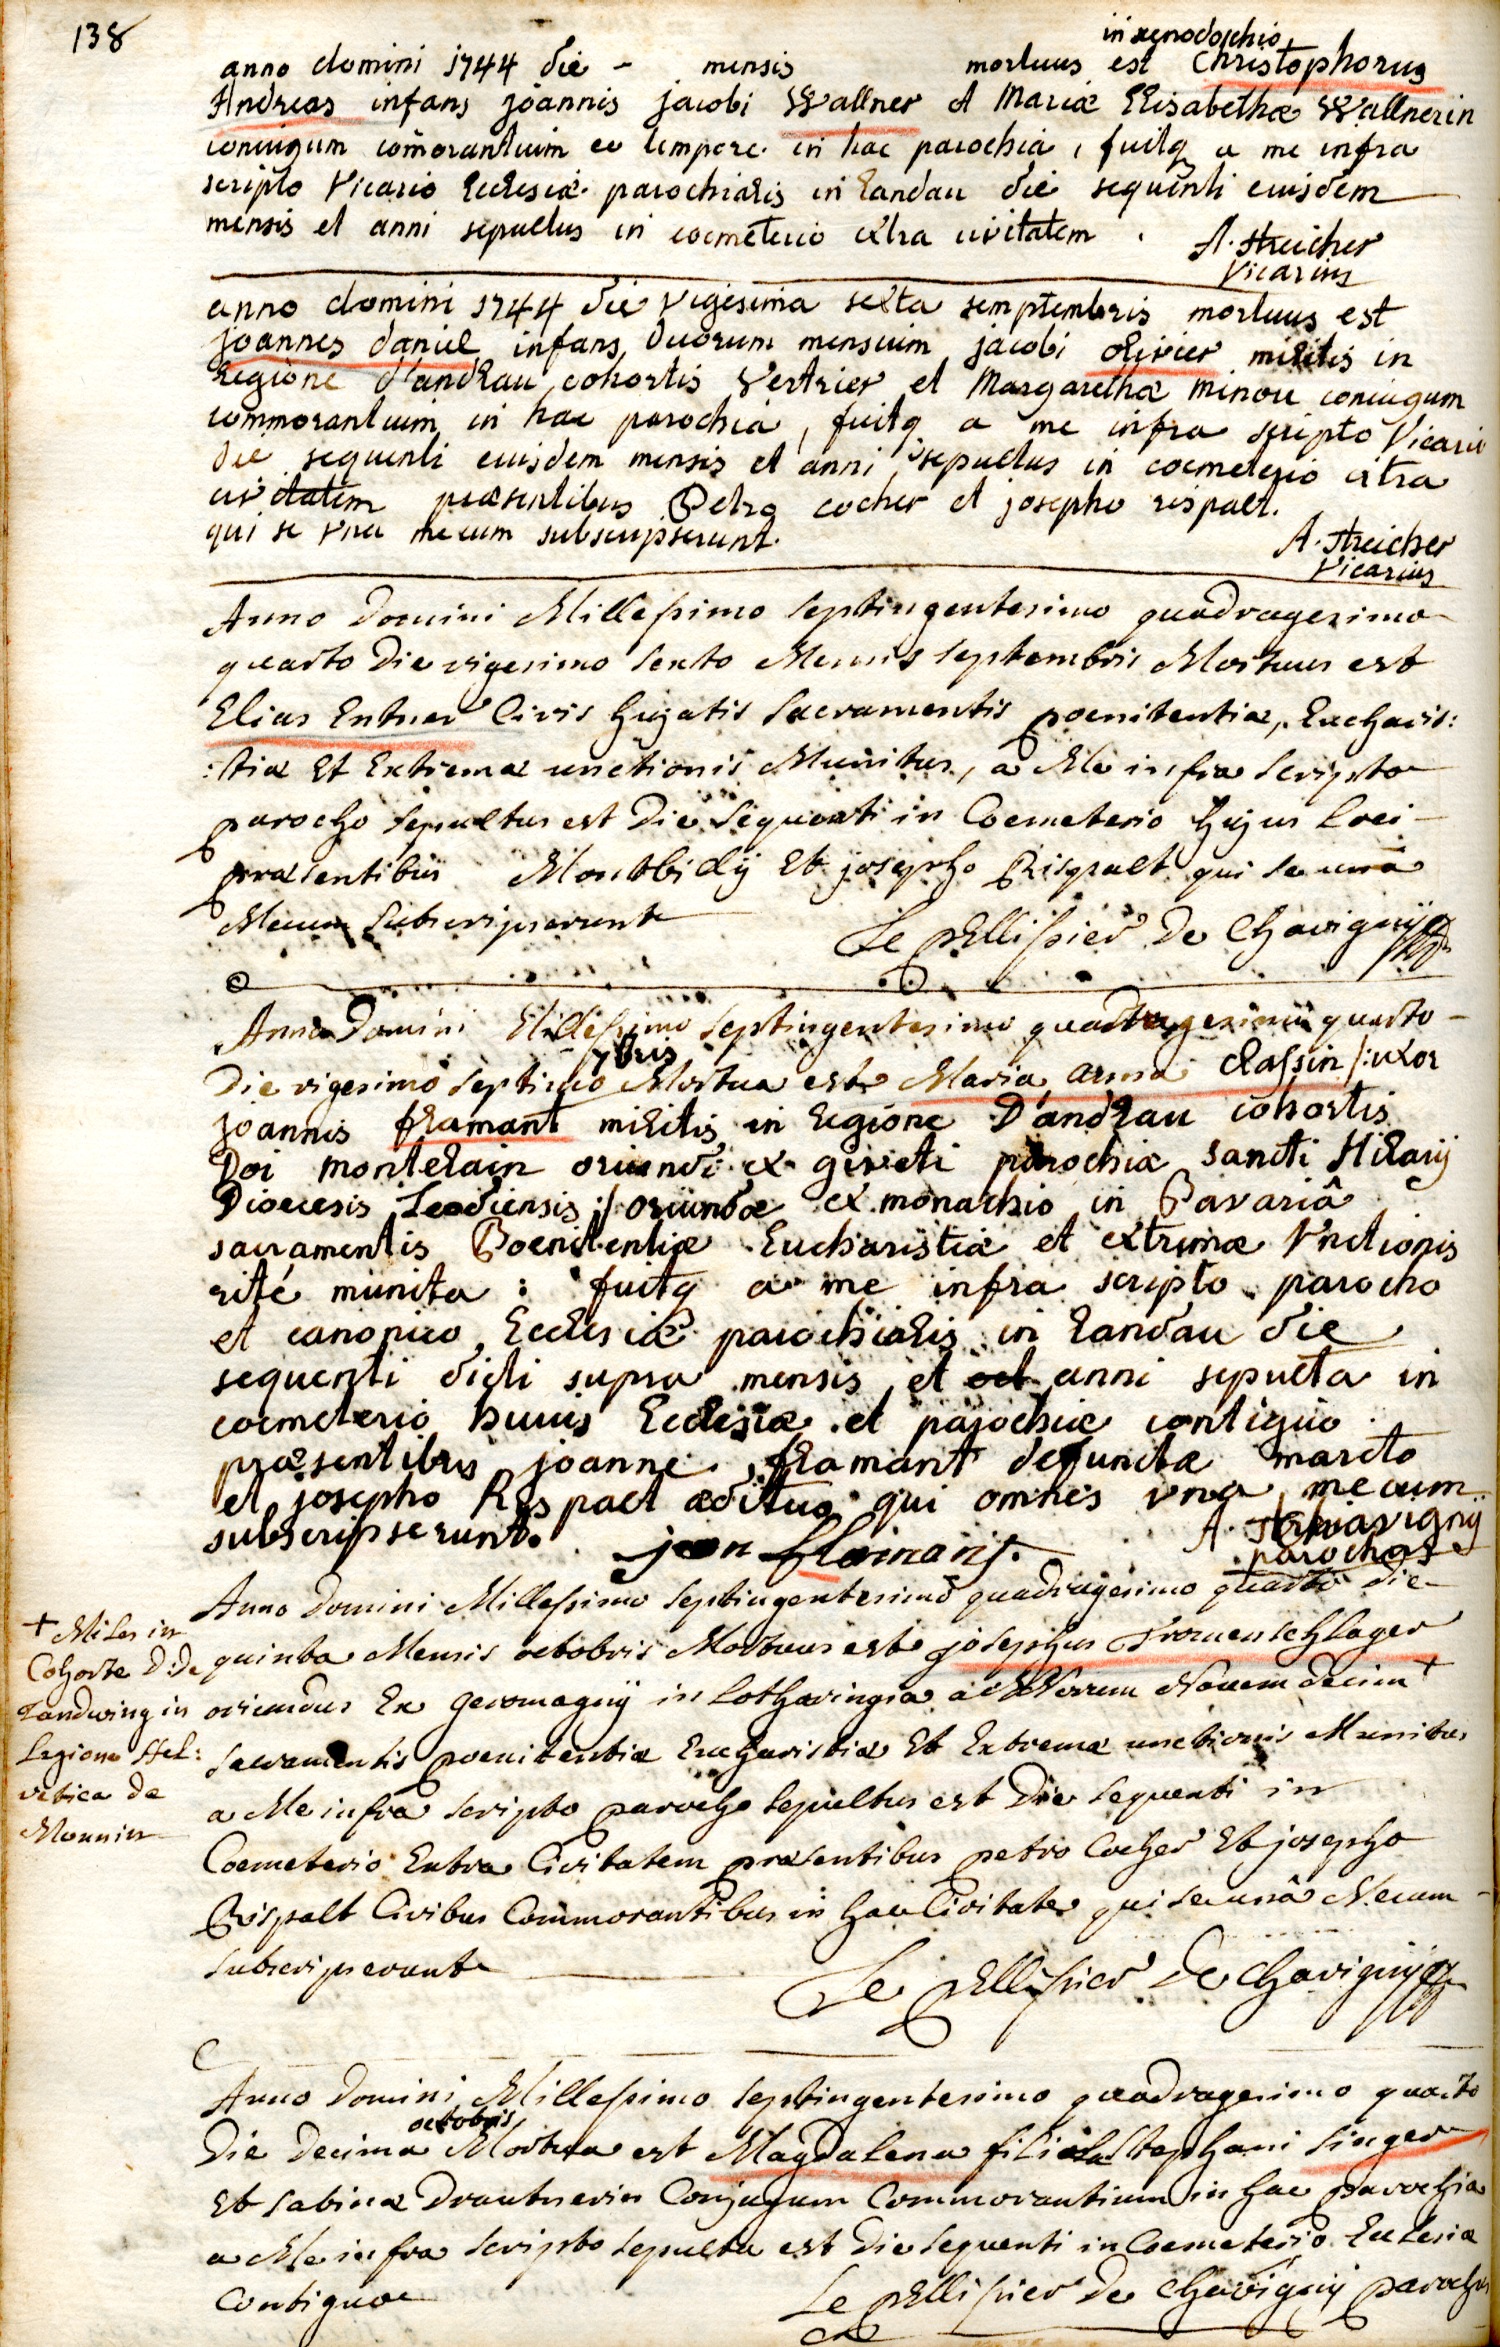 138
in xenodochio
anno domini 1744 die - mensis mortuus est Christophorus
Andreas infans joannis jacobi Wallner et Mariæ Elisabethæ Wallnerin
coniugum com̄orantium eo tempore in hac parochia, fuitq a me infra
scripto Vicario Ecclesiæ parochialis in Landau die sequenti eiusdem
mensis et anni sepultus in coemeterio extra civitatem.
A. Streicher
Vicarius
anno domini 1744 die vigesima sexta semptembris mortuus est
joannes daniel infans duorum mensium jacobi olivier militis in
legione d'andlau cohortis Vertrier et Margarethæ minou coniugum
commorantium in hac parochia, fuitq a me infra scripto Vicario
die sequenti eiusdem mensis et anni sepultus in coemeterio extra
civitatem præsentibus Petro cocher et josepho rispalt.
qui se vna mecum subscripserunt.
A. Streicher
Vicarius
Anno Domini Millesimo septingentesimo quadragesimo
quarto Die vigesimo sexto Mensis septembris Mortuus est
Elias Entner Civis hujatis sacramentis poenitentiæ, Eucharis:
:tiæ Et Extremæ unctionis Munitus, a Me infra scripto
parocho sepultus est Die sequenti in Coemeterio hujus Loci -
præsentibus Montbidij Et josepho Rispalt qui se unâ
Mecum subscripserunt
Le pellissier De Chavignÿ
Anno Domini Millesimo septingentesimo quadragesimo quarto -
7bris
Die vigesimo septimo Mortua est Maria anna classin /: uxor
joannis flamant militis in legione D'andlau cohortis
Doi montelain oriundi ex giveti parochiæ sancti Hilarij
Dioecesis Leodiensis :/ oriundæ ex monachio in Bavariâ
sacramentis Poenitentiæ Eucharistiæ et extremæ Vnctionis
rité munita : fuitq a me infra scripto parocho
et canonico Ecclesiæ parochialis in Landau die
sequenti dicti supra mensis et anni sepulta in
coemeterio huius Ecclesiæ et parochiæ contiguo
præsentibus joanne flamant defunctæ marito
et josepho Rispalt ædituo qui omnes vna mecum
subscripserunt.
jean flamant
chavignÿ
parochus
Anno Domini Millesimo septingentesimo quadragesimo quarto die
quinta Mensis octobris Mortuus est josephus Frauenschlager
oriundus Ex geromagny in Lotharingia annorum Novem decim +
sacramentis poenitentiæ Eucharistiæ Et Extremæ unctionis Munitus
a Me infra scripto parocho sepultus est Die sequenti in
Coemeterio Extra Civitatem præsentibus petro Cocher Et josepho
Rispalt Civibus Commorantibus in hac Civitate qui se unâ Mecum -
subscripserunt
Le pellissier De Chavignÿ
+ Miles in
Cohorte D: De
Landwing in
Legione Hel:
vetica de
Monnin
Anno Domini Millesimo septingentesimo quadragesimo quarto
octobris
Die Decima Mortua est Magdalena filiola stephani singer
Et sabinæ Drautnerin Conjugum Commorantium in hac parochia
a Me infra scripto sepulta est Die sequenti in Coemeterio Ecclesiæ
Contiguo
Le pellissier De Chavignÿ parochus